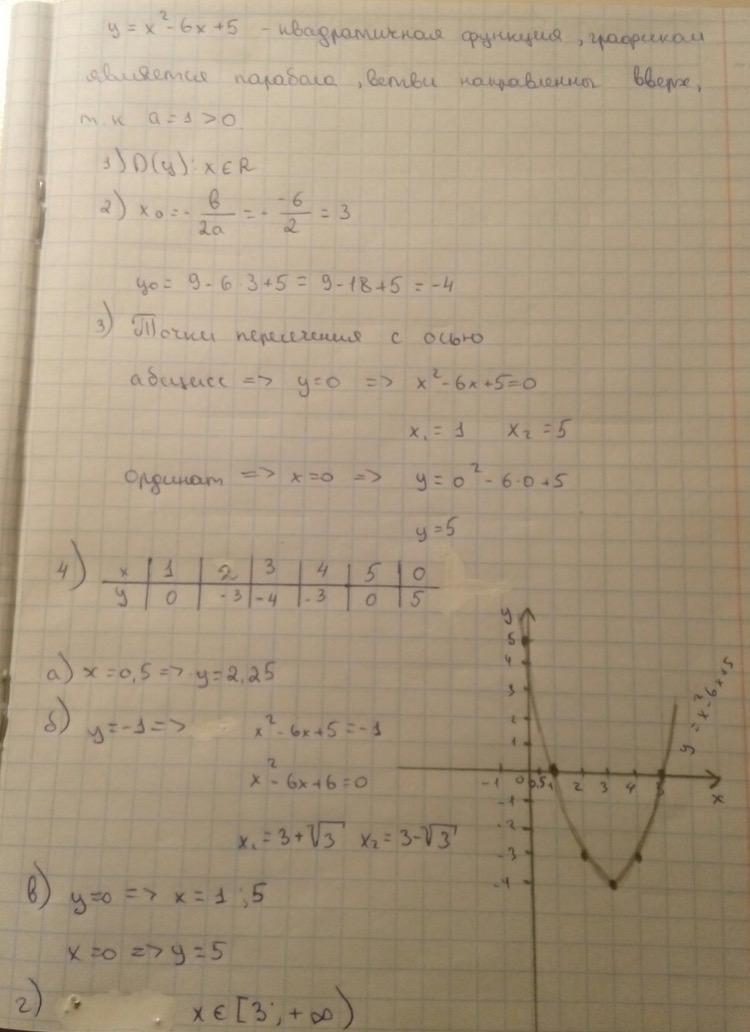 y = x² - 6x + 5 - квадратичная функция, графиком
является парабола, ветви направленны вверх,
т.к a = 1 > 0
1) D(y): x ∈ R
2) x₀ = - b/2a = - -6/2 = 3
y₀ = 9 - 6·3 + 5 = 9 - 18 + 5 = -4
3) Точки пересечения с осью
абсцисс => y=0 => x² - 6x + 5 = 0
x₁ = 1 x₂ = 5
ординат => x=0 => y = 0² - 6·0 + 5
y = 5
4) x | 1 | 2 | 3 | 4 | 5 | 0
y | 0 | -3 | -4 | -3 | 0 | 5
а) x = 0,5 => y = 2,25
б) y = -1 => x² - 6x + 5 = -1
x² - 6x + 6 = 0
x₁ = 3 + √3 x₂ = 3 - √3
в) y=0 => x = 1; 5
x=0 => y = 5
г) x ∈ [3; +∞)
y
5
4
3
2
1
-1 0 0,5 1 2 3 4 5 x
-1
-2
-3
-4
y = x² - 6x + 5